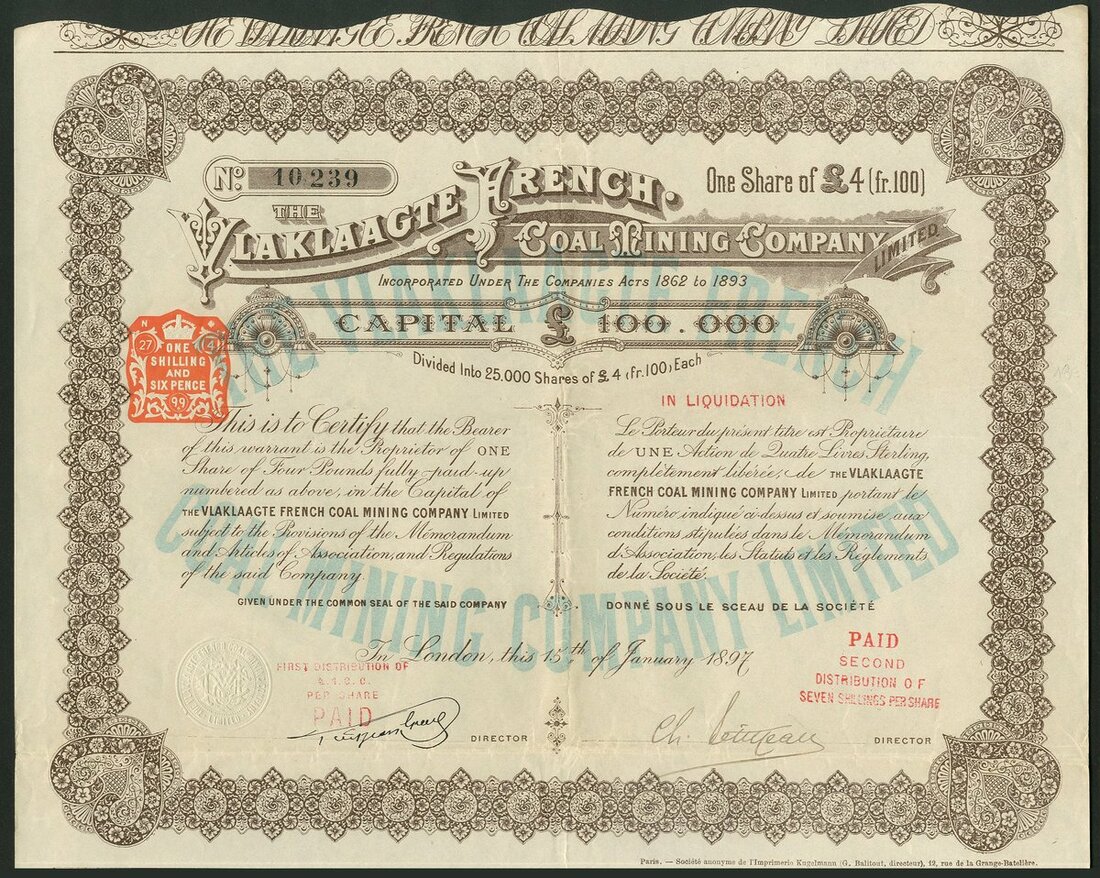 THE VLAKLAAGTE FRENCH COAL MINING COMPANY LIMITED
No. 10239
One Share of £4 (fr.100)
THE
VLAKLAAGTE FRENCH.
COAL MINING COMPANY LIMITED
INCORPORATED UNDER THE COMPANIES ACTS 1862 TO 1893
CAPITAL £ 100.000
Divided Into 25.000 Shares of £4 (fr.100) Each
N
27
ONE
SHILLING
AND
SIX PENCE
99
IN LIQUIDATION
THE VLAKLAAGTE FRENCH
COAL MINING COMPANY LIMITED
This is to Certify that the Bearer
of this warrant is the Proprietor of ONE
Share of Four Pounds fully paid up
numbered as above, in the Capital of
THE VLAKLAAGTE FRENCH COAL MINING COMPANY LIMITED
subject to the Provisions of the Memorandum
and Articles of Association, and Regulations
of the said Company.
GIVEN UNDER THE COMMON SEAL OF THE SAID COMPANY
Le Porteur du présent titre est Propriétaire
de UNE Action de Quatre Livres Sterling,
complètement libérée, de THE VLAKLAAGTE
FRENCH COAL MINING COMPANY LIMITED portant le
Numéro indiqué ci-dessus et soumise aux
conditions stipulées dans le Mémorandum
d'Association, les Statuts et les Règlements
de la Société.
DONNÉ SOUS LE SCEAU DE LA SOCIÉTÉ
In London, this 15th of January 1897
FIRST DISTRIBUTION OF
PER SHARE
PAID
PAID
SECOND
DISTRIBUTION OF
SEVEN SHILLINGS PER SHARE
DIRECTOR
Ch.
DIRECTOR
Paris. — Société anonyme de l'Imprimerie Kugelmann (G. Balitout, directeur), 12, rue de la Grange-Batelière.